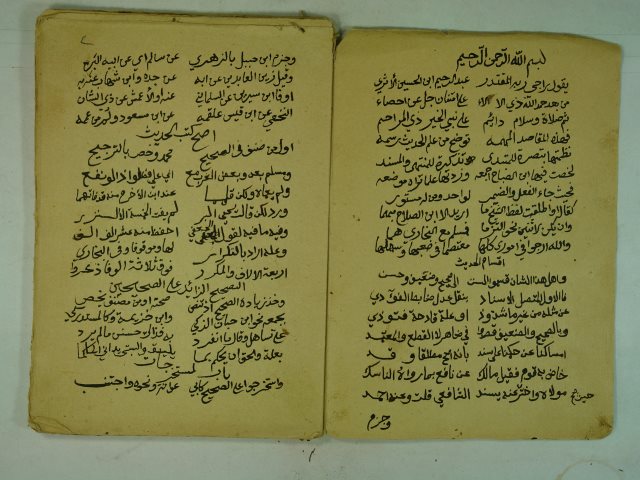 بسم الله الرحمن الرحيم
يقول راجي ربه المقتدر عبد الرحيم ابن الحسين الاثري
من بعد حمد الله ذي الالاء على امتنان جل عن احصاء
ثم صلاة وسلام دائم على نبي الخير ذي المراحم
فهذه المقاصد المهمه توضح من علم الحديث رسمه
نظمتها تبصرة للمبتدي تذكرة للمنتهي والمسند
لخصت فيها ابن الصلاح اجمعه وزدتها علما تراه موضعه
فحيث جاء الفعل والضمير لواحد ومن له مستور
كقال او اطلقت لفظ الشيخ ما اريد الا ابن الصلاح مبهما
وان يكن لاثنين نحو التزما فمسلم مع البخاري هما
والله ارجو في اموري كلها معتصما في صعبها وسهلها
اقسام الحديث
واهل هذا الشان قسموا السنن الى صحيح وضعيف وحسن
فالاول المتصل الاسناد بنقل عدل ضابط الفؤاد
عن مثله من غير ما شذوذ او علة قادحة فتوذي
وبالصحيح والضعيف قصدوا في ظاهر لا القطع والمعتمد
امساكنا عن حكمنا على سند بانه اصح مطلقا وقد
خاض به قوم فقيل مالك عن نافع بما رواه الناسك
مولاه واختر حيث عنه يسند الشافعي قلت وعنه احمد
وجزم
وجزم ابن حنبل بالزهري عن سالم اي عن ابيه البر
وقيل زين العابدين عن ابه عن جده وابن شهاب عنه به
او فابن سيرين عن السلماني عنه او الاعمش عن ذي الشان
النخعي عن ابن قيس علقمه عن ابن مسعود ولم من عممه
اصح كتب الحديث
اول من صنف في الصحيح محمد وخص بالترجيح
ومسلم بعد وبعض الغرب مع ابي علي فضلوا ذا لو نفع
ولم يعماه ولكن قلما عند ابن الاخرم منه قد فاتهما
ورد لكن قال يحيى البر لم يفت الخمسة الا النزر
وفيه ما فيه لقول الجعفي احفظ منه عشر الف الف
وعله اراد بالتكرار لها وموقوفا وفي البخاري
اربعة الالاف والمكرر فوق ثلاثة الوفا ذكروا
الصحيح الزائد على الصحيحين
وخذ زيادة الصحيح اذ تنص صحته او من مصنف يخص
بجمعه نحو ابن حبان الزكي وابن خزيمة وكالمستدرك
على تساهل وقال ما انفرد به فذاك حسن ما لم يرد
بعلة والحق ان يحكم بما يليق والبستي يدانى الحاكما
باب المستخرجات
واستخرجوا على الصحيح كابي عوانة ونحوه واجتنب